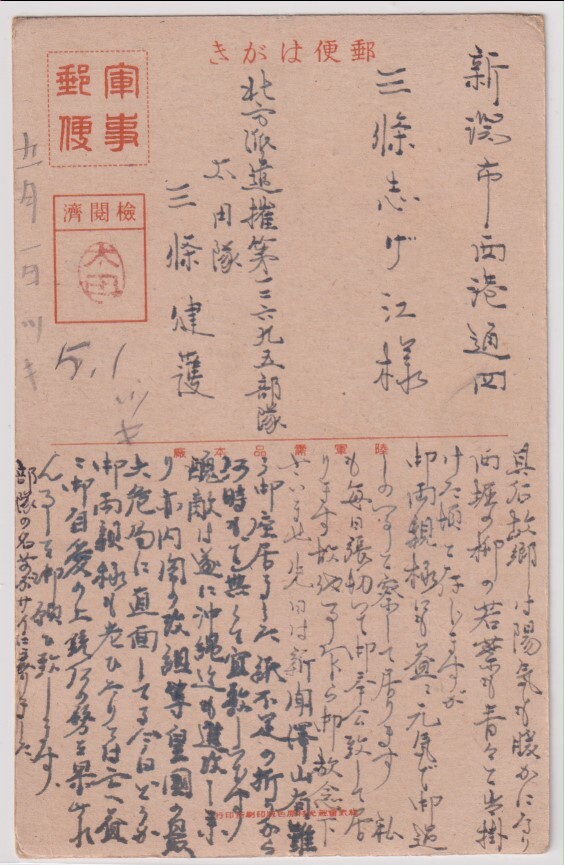 郵便はがき
軍事
郵便
檢閲濟
太田
五月一日ツキ
5.1ツキ
新潟市西港通四
三條志げ江様
北方派遣摧第一二六九五部隊
太田隊
三條健護
陸軍需品本廠
其后故郷は陽気も暖かになり
西堀の柳の若葉も青々と出掛
けた頃と存じますが
御両親様にも益々元気で御過
しの事と察して居ります 私
も毎日張切って御奉公致して居
ります故 御放念下
さい 先日は新聞澤山有難
う御座居ました 紙不足の折から
何時でも無くて宜敷しいです
醜敵は遂に沖縄迄も進攻し来
り亦内閣の改組等皇国の最
大危局に直面してる今日どうか
御両親様も老ひ
御自愛の上銃后の努を果され
ん事を御願ひ致します
部隊の名前がサイに変りました